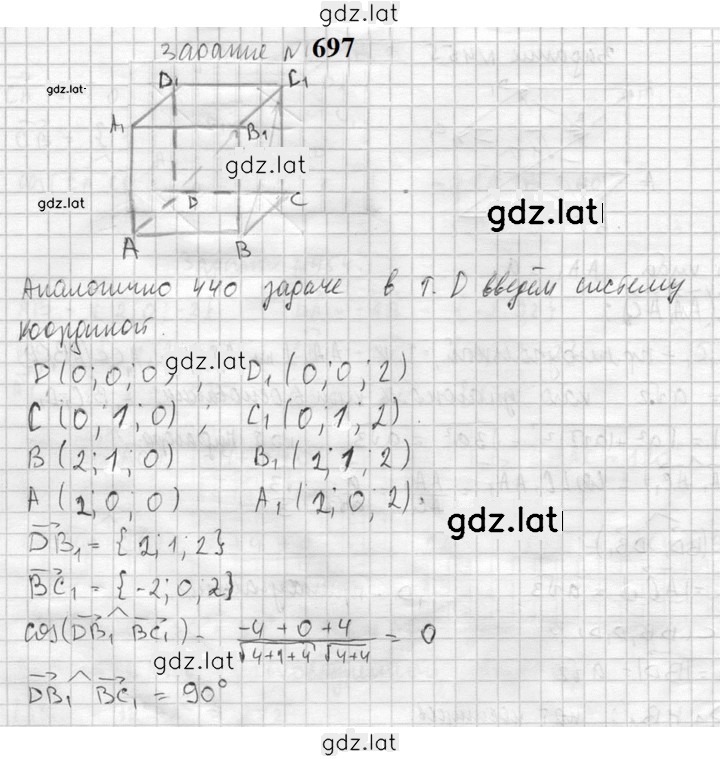 gdz.lat
задание № 697
D₁ C₁
gdz.lat
A₁ B₁
gdz.lat
gdz.lat D C gdz.lat
A B
Аналогично 440 задаче в т. D введём систему
координат.
gdz.lat
D (0; 0; 0) ; D₁ (0; 0; 2)
C (0; 1; 0) ; C₁ (0; 1; 2)
B (2; 1; 0) B₁ (2; 1; 2)
A (2; 0; 0) A₁ (2; 0; 2).
gdz.lat
DB₁ = {2; 1; 2}
BC₁ = {-2; 0; 2}
cos(DB₁ ^ BC₁) - (-4 + 0 + 4) / (√4+1+4 √4+4) = 0
gdz.lat
DB₁ ^ BC₁ = 90°
gdz.lat